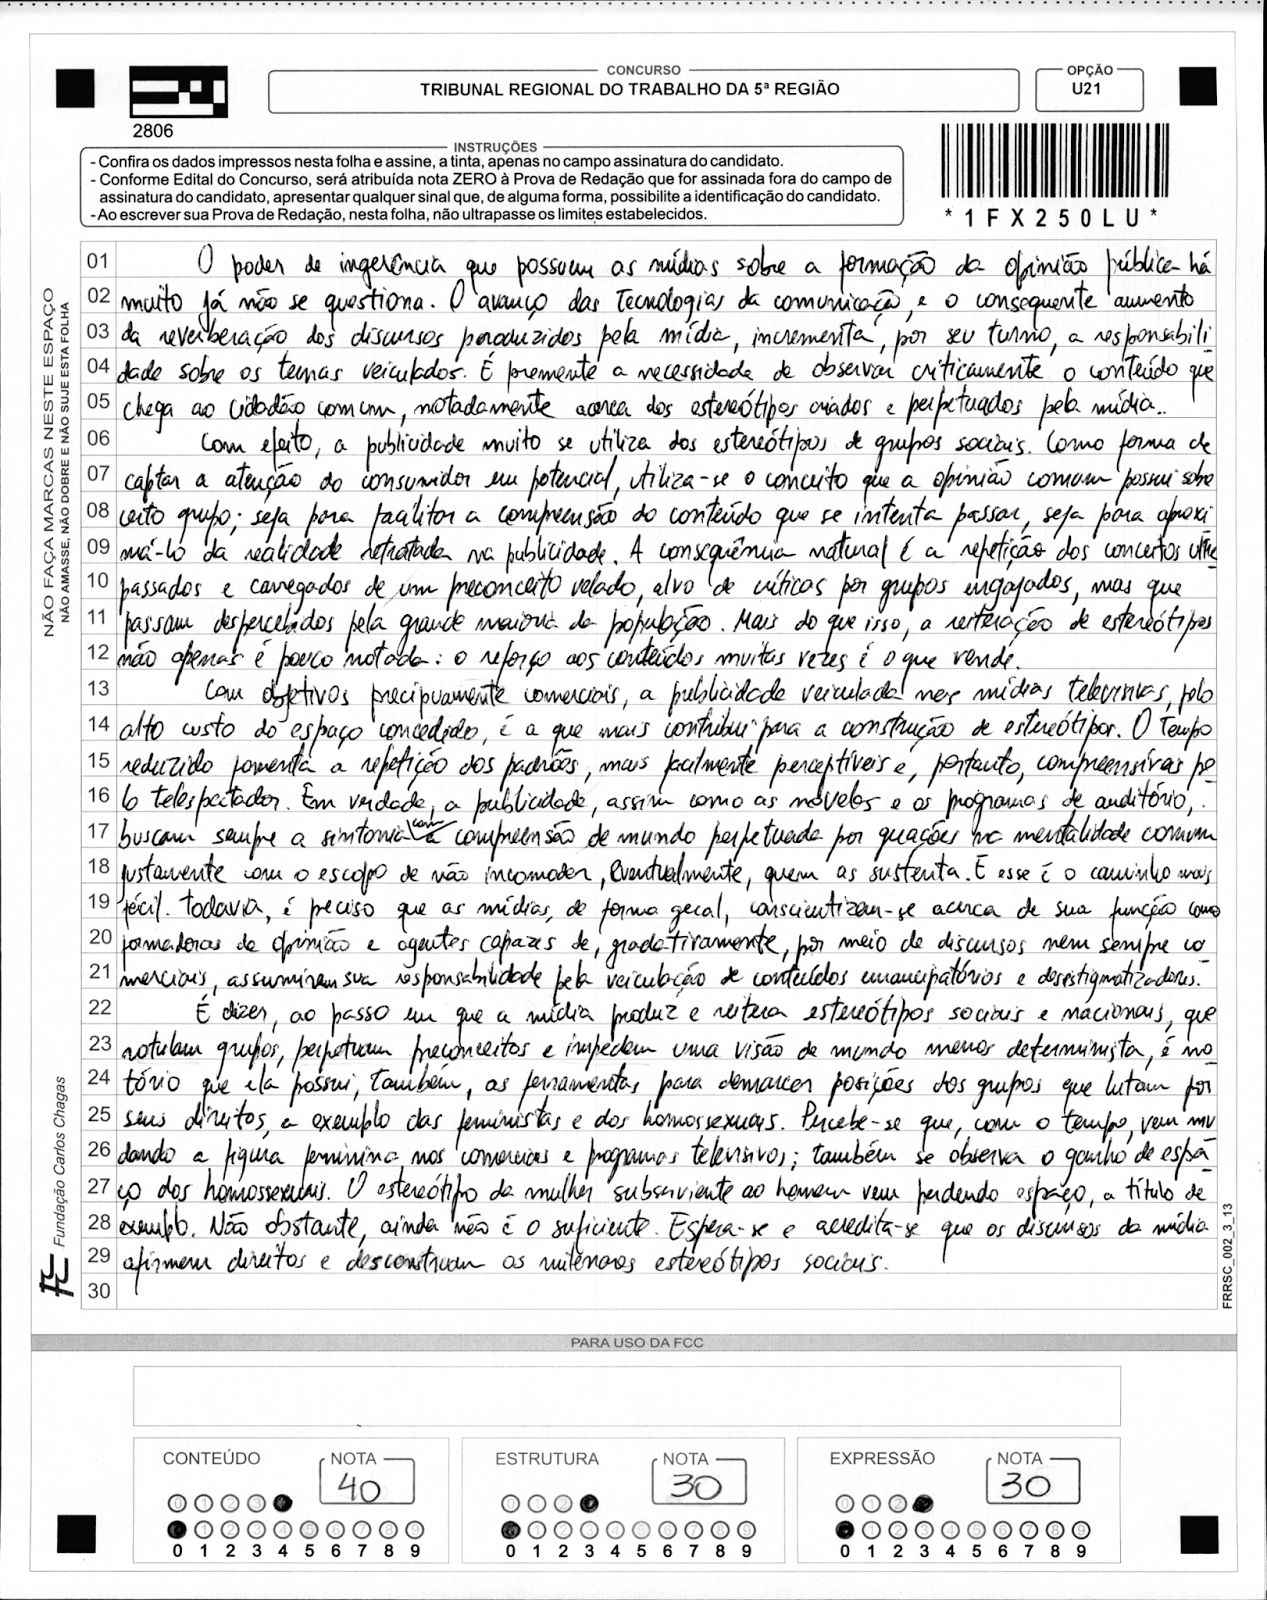 CONCURSO
TRIBUNAL REGIONAL DO TRABALHO DA 5ª REGIÃO
OPÇÃO
U21
2806
INSTRUÇÕES
- Confira os dados impressos nesta folha e assine, a tinta, apenas no campo assinatura do candidato.
- Conforme Edital do Concurso, será atribuída nota ZERO à Prova de Redação que for assinada fora do campo de
assinatura do candidato, apresentar qualquer sinal que, de alguma forma, possibilite a identificação do candidato.
- Ao escrever sua Prova de Redação, nesta folha, não ultrapasse os limites estabelecidos.
* 1 F X 2 5 0 L U *
NÃO FAÇA MARCAS NESTE ESPAÇO
NÃO AMASSE, NÃO DOBRE E NÃO SUJE ESTA FOLHA
01 O poder de ingerência que possuem as mídias sobre a formação da opinião pública há
02 muito já não se questiona. O avanço das tecnologias da comunicação, e o consequente aumento
03 da reverberação dos discursos produzidos pela mídia, incrementa, por seu turno, a responsabili
04 dade sobre os temas veiculados. É premente a necessidade de observar criticamente o conteúdo que
05 chega ao cidadão comum, notadamente acerca dos estereótipos criados e perpetuados pela mídia..
06 Com efeito, a publicidade muito se utiliza dos estereótipos de grupos sociais. Como forma de
07 captar a atenção do consumidor em potencial, utiliza-se o conceito que a opinião comum possui sobre
08 certo grupo; seja para facilitar a compreensão do conteúdo que se intenta passar, seja para aproxi
09 má-lo da realidade retratada na publicidade. A consequência natural é a repetição dos conceitos ultra
10 passados e carregados de um preconceito velado, alvo de críticas por grupos engajados, mas que
11 passam despercebidos pela grande maioria da população. Mais do que isso, a reiteração de estereótipos
12 não apenas é pouco notada: o reforço aos conteúdos muitas vezes é o que vende.
13 Com objetivos precipuamente comerciais, a publicidade veiculada nas mídias televisivas, pelo
14 alto custo do espaço concedido, é a que mais contribui para a construção de estereótipos. O tempo
15 reduzido fomenta a repetição dos padrões, mais facilmente perceptíveis e, portanto, compreensíveis pe
16 lo telespectador. Em verdade, a publicidade, assim como as novelas e os programas de auditório,
17 buscam sempre a sintonia com a compreensão de mundo perpetuada por gerações na mentalidade comum
18 justamente com o escopo de não incomodar, eventualmente, quem as sustenta. E esse é o caminho mais
19 fácil. Todavia, é preciso que as mídias, de forma geral, conscientizem-se acerca de sua função como
20 formadoras de opinião e agentes capazes de, gradativamente, por meio de discursos nem sempre co
21 merciais, assumirem sua responsabilidade pela veiculação de conteúdos emancipatórios e desestigmatizadores.
22 É dizer, ao passo em que a mídia produz e reitera estereótipos sociais e nacionais, que
23 rotulam grupos, perpetuam preconceitos e impedem uma visão de mundo menos determinista, é no
24 tório que ela possui, também, as ferramentas para demarcar posições dos grupos que lutam por
25 seus direitos, a exemplo das feministas e dos homossexuais. Percebe-se que, com o tempo, vem mu
26 dando a figura feminina nos comerciais e programas televisivos; também se observa o ganho de espa-
27 ço dos homossexuais. O estereótipo da mulher subserviente ao homem vem perdendo espaço, a título de
28 exemplo. Não obstante, ainda não é o suficiente. Espera-se e acredita-se que os discursos da mídia
29 afirmem direitos e desconstruam os milenares estereótipos sociais.
30
Fundação Carlos Chagas
FRRSC_002_3_13
PARA USO DA FCC
CONTEÚDO NOTA 40
0 1 2 3 4
0 1 2 3 4 5 6 7 8 9
0 1 2 3 4 5 6 7 8 9
ESTRUTURA NOTA 30
0 1 2 3
0 1 2 3 4 5 6 7 8 9
0 1 2 3 4 5 6 7 8 9
EXPRESSÃO NOTA 30
0 1 2 3
0 1 2 3 4 5 6 7 8 9
0 1 2 3 4 5 6 7 8 9